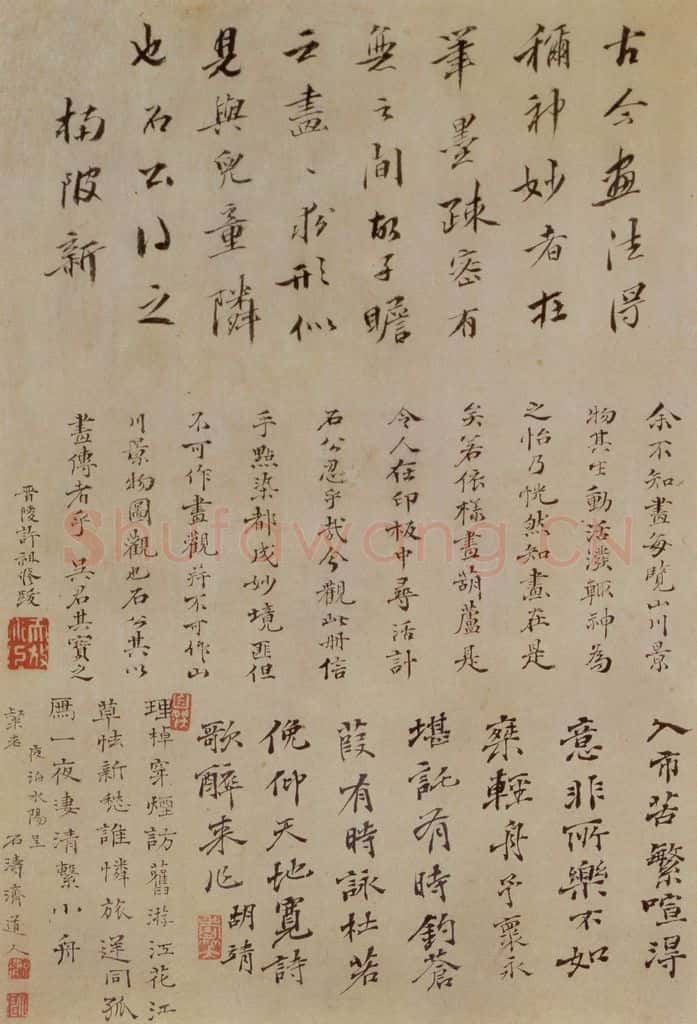 古今畫法得
稱神妙者在
筆墨疎密有
無之間故子瞻
云畫〻求形似
見與兒童隣
也石公得之
楠陂新
余不知畫每覽山川景
物其生動活潑輒神為
之怡乃恍然知畫在是
矣若依樣畫葫蘆是
令人在印板中尋活計
石公忍乎哉今觀此冊信
手點染都成妙境匪但
不可作畫觀並不可作山
川景物圖觀也石公其以
畫傳者乎 吳君其寶之
晉陵許祖
入市苦繁喧得
意非所樂不如
棄輕舟予襄永
堪託有時釣蒼
葭有時詠杜若
俛仰天地寬詩
歌醉來作 胡靖
理棹穿煙訪舊游江花江
草怯新愁誰憐旅逆同孤
鴈一夜淒清繫小舟
夜泊水陽呈
粲老
石濤濟道人
Shufawang.CN